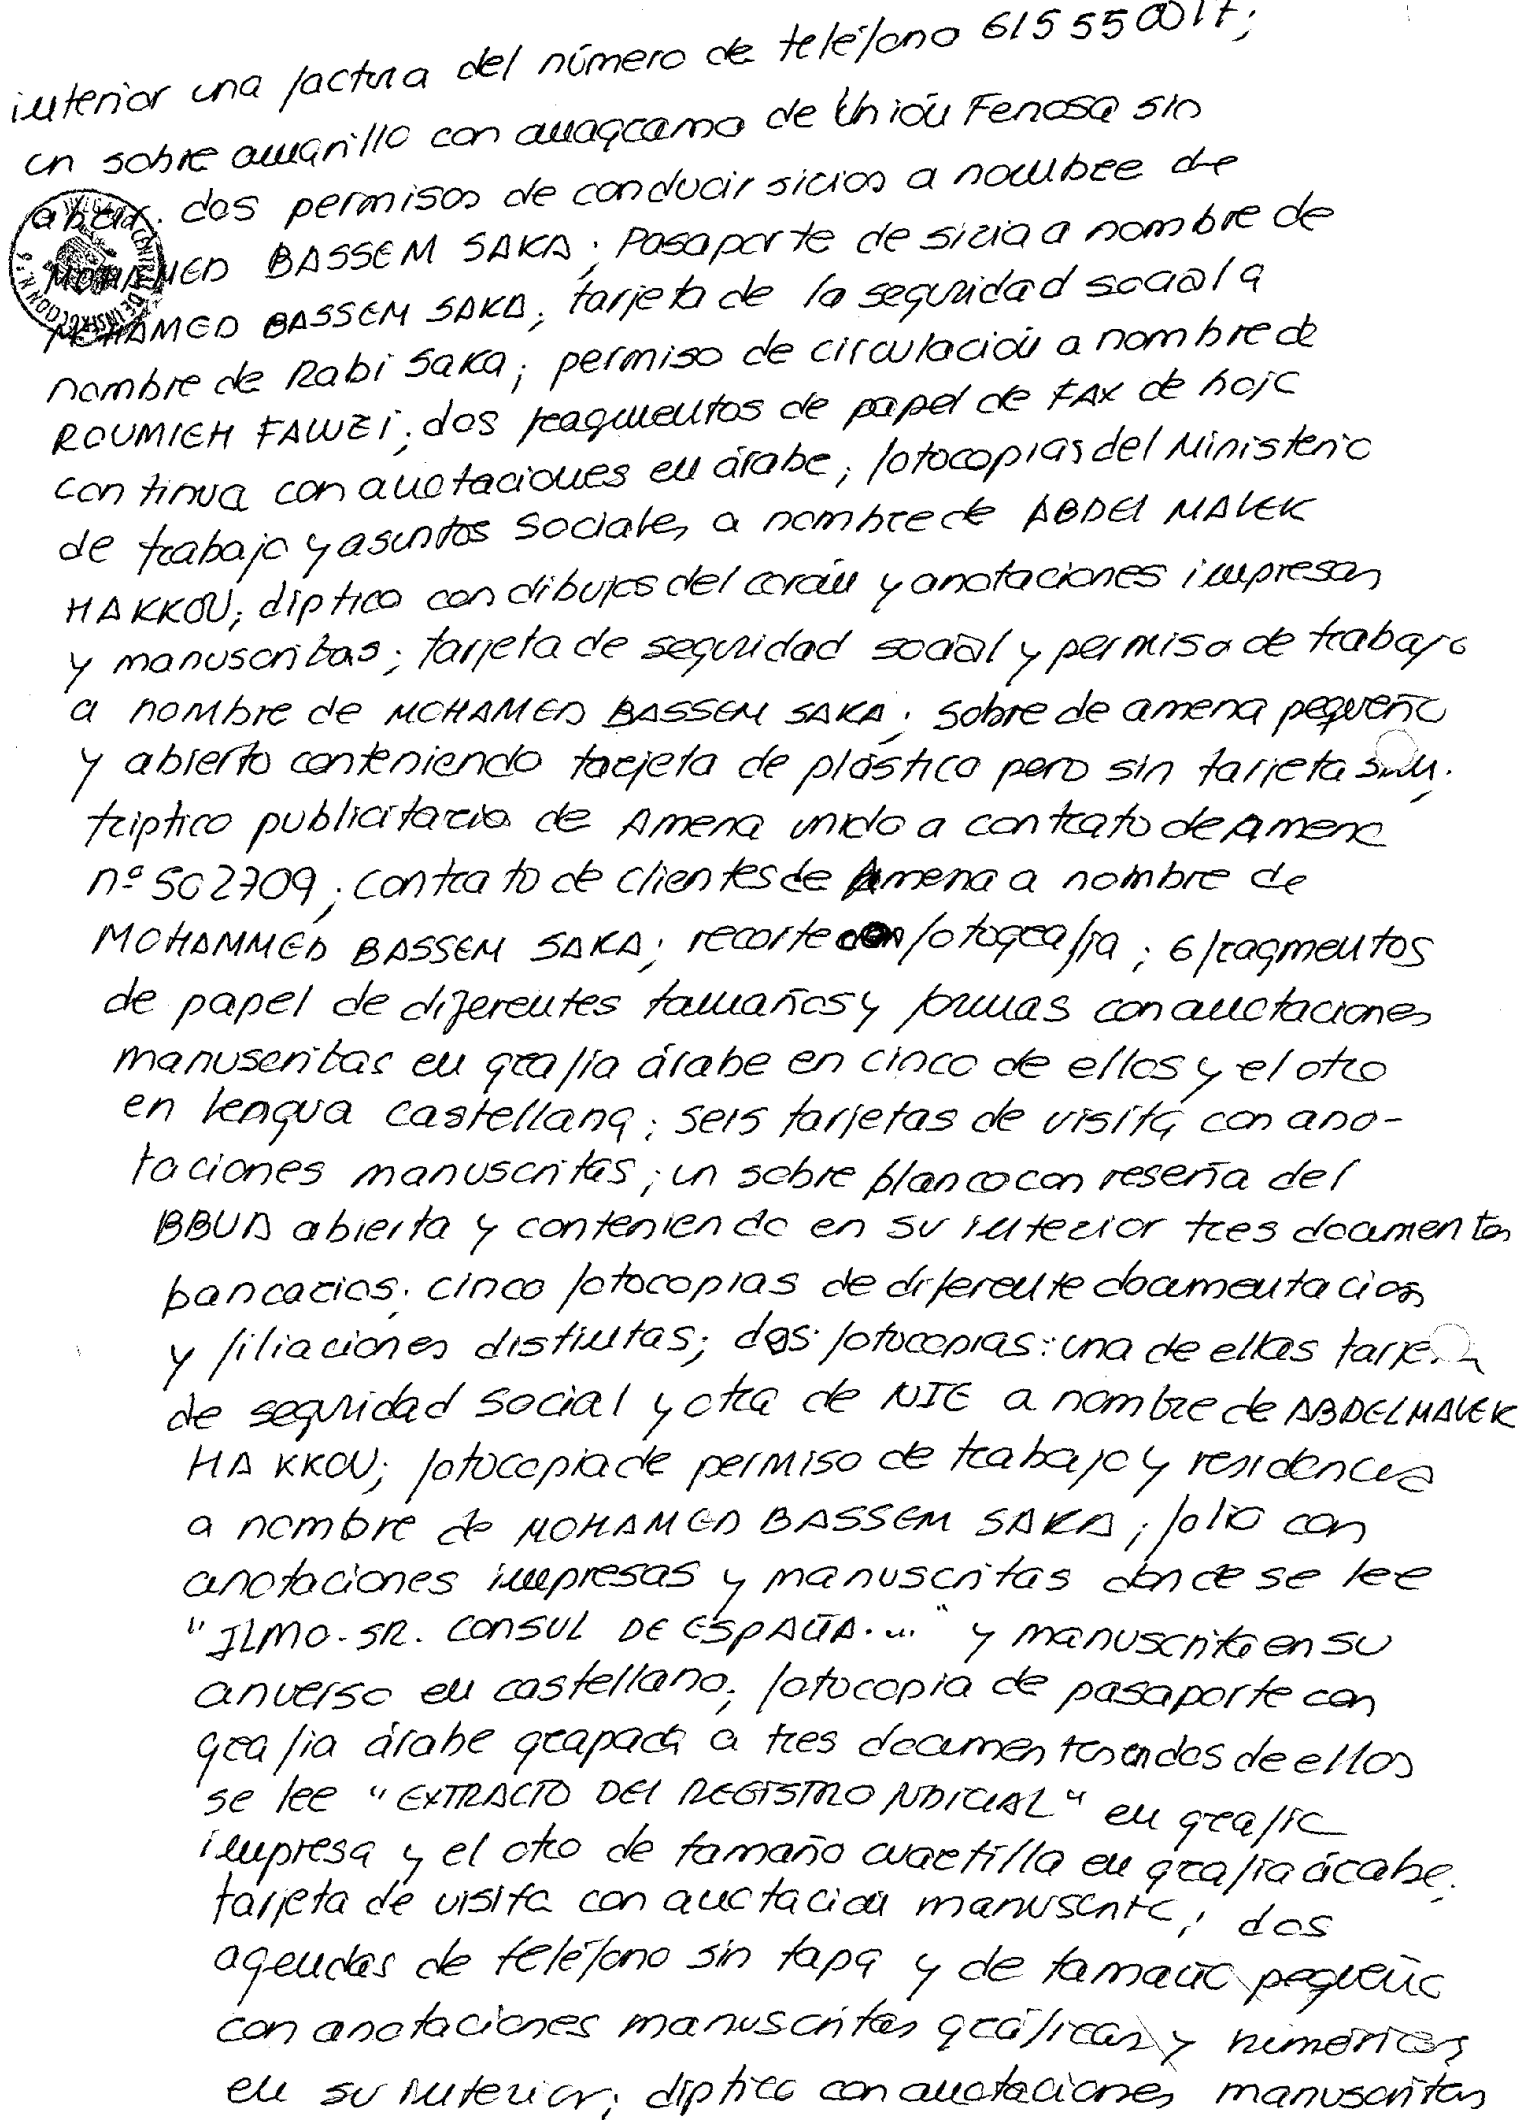 interior una factura del número de teléfono 615550017;
un sobre amarillo con anagrama de Unión Fenosa sin
abrir. dos permisos de conducir sirios a nombre de
MOHAMED BASSEM SAKA; Pasaporte de siria a nombre de
MOHAMED BASSEM SAKA; tarjeta de la seguridad social a
nombre de Rabi Saka; permiso de circulación a nombre de
ROUMIEH FAWZI; dos fragmentos de papel de FAX de hoja
continua con anotaciones en árabe; fotocopias del Ministerio
de trabajo y asuntos sociales a nombre de ABDEL MALEK
HAKKOU; díptico con dibujos del corán y anotaciones impresas
y manuscritas; tarjeta de seguridad social y permiso de trabajo
a nombre de MOHAMED BASSEM SAKA; sobre de amena pequeño
y abierto conteniendo tarjeta de plástico pero sin tarjeta sim;
triptico publicitario de Amena unido a contrato de Amena
nº 502709; contrato de clientes de Amena a nombre de
MOHAMMED BASSEM SAKA; recorte con fotografia; 6 fragmentos
de papel de diferentes tamaños y formas con anotaciones
manuscritas en grafia árabe en cinco de ellos y el otro
en lengua castellana; seis tarjetas de visita con ano-
taciones manuscritas; un sobre blanco con reseña del
BBVA abierta y conteniendo en su interior tres documentos
bancarios; cinco fotocopias de diferente documentacion
y filiaciones distintas; dos fotocopias: una de ellas tarjeta
de seguridad social y otra de NIE a nombre de ABDELMALEK
HAKKOU; fotocopia de permiso de trabajo y residencia
a nombre de MOHAMED BASSEM SAKA; folio con
anotaciones impresas y manuscritas donde se lee
"ILMO. SR. CONSUL DE ESPAÑA..." y manuscrita en su
anverso en castellano; fotocopia de pasaporte con
grafia árabe grapada a tres documentos en dos de ellos
se lee "EXTRACTO DEL REGISTRO JUDICIAL" en grafia
impresa y el otro de tamaño cuartilla en grafia árabe;
tarjeta de visita con anotación manuscrita; dos
agendas de teléfono sin tapa y de tamaño pequeño
con anotaciones manuscritas gráficas y numéricas
en su interior; diptico con anotaciones manuscritas